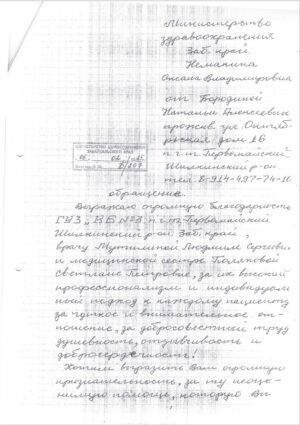 Министерство
здравоохранения
Заб. край
Немакина
Оксана Владимировна
от Бородиной
Натальи Алексеевны
прожив. ул. Октяб-
рьская дом 16
п.г.т. Первомайский
Шилкинский р-он
тел. 8-914-497-74-10
обращение.
Выражаю огромную благодарность
ГУЗ "КБ №3" п.г.т. Первомайский
Шилкинский р-он Заб. край,
врачу Людмиле Сергеевн.
и медицинской сестре Поляковой
Светлане Петровне, за их высокий
профессионализм и индивидуаль
ный подход к каждому пациенту
за чуткое и внимательное от-
ношение, за добросовестный труд
душевность, отзывчивость и
добросердечность!
Хотим выразить Вам огромную
признательность, за ту неоце-
нимую помощь, которую Вы